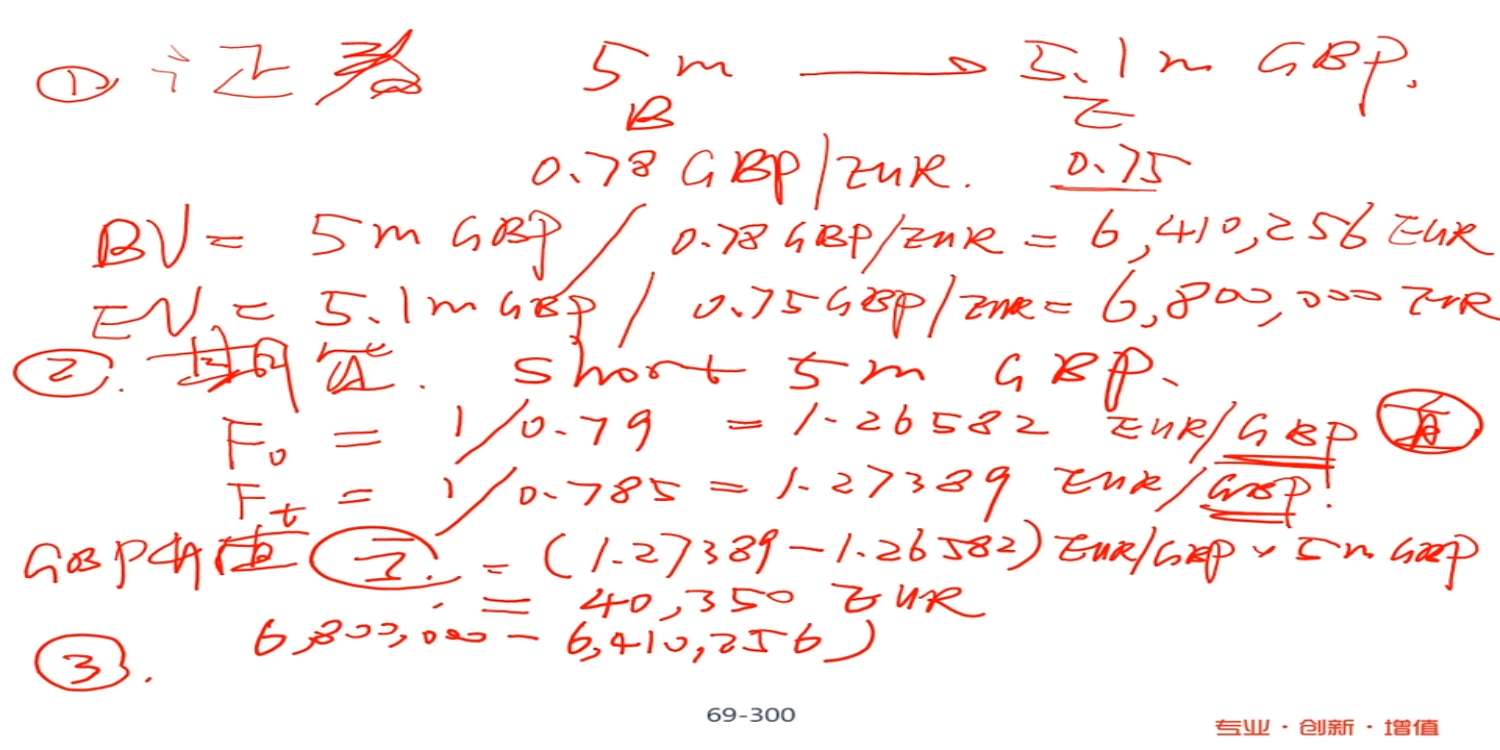 ① 证券 5m → 5.1m GBP.
B E
0.78 GBP/EUR. 0.75
BV = 5m GBP / 0.78 GBP/EUR = 6,410,256 EUR
EV = 5.1m GBP / 0.75 GBP/EUR = 6,800,000 EUR
②. short 5m GBP.
F₀ = 1/0.79 = 1.26582 EUR/GBP
Ft = 1/0.785 = 1.27389 EUR/GBP.
GBP升值 = (1.27389 - 1.26582) EUR/GBP × 5m GBP
= 40,350 EUR
③. 6,800,000 - 6,410,256)
69-300
专业 · 创新 · 增值